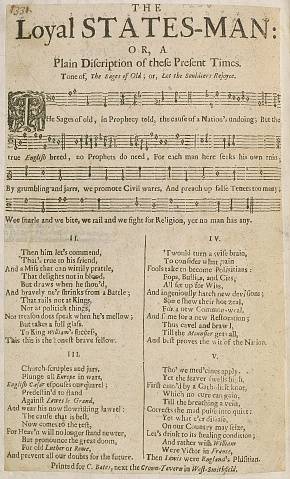 THE
Loyal STATES-MAN:
OR, A
Plain Discription of these Present Times.
Tone of, The Sages of Old; or, Let the Souldiers Rejoyce.
THe Sages of old, in Prophecy told, the cause of a Nation's undoing; But the
true English breed, no Prophets do need, For each man here seeks his own ruin;
By grumbling and jarrs, we promote Civil warrs, And preach up false Tenets too many;
Wee snarle and we bite, we rail and we fight for Religion, yet no man has any.
II.
Then him let's commend,
That's true to his friend,
And a Miss that can wittily prattle,
That delights not in blood,
But draws when he shou'd,
And bravely ne'r shrinks from a Battle;
That rails not at Kings,
Nor at politick things,
Nor treason does speak when he's mellow;
But takes a full glass,
To King William's success,
This this is the honest brave fellow.
III.
Church-scruples and jars,
Plunge all Europe in wars,
English Cæsar espouses our quarrel;
Against Lewis le Grand,
And wear his now flowrishing lawrel:
The cause that is best,
Now comes to the test,
For Heav'n will no longer stand neuter,
But pronounce the great doom,
For old Luther or Rome,
And prevent all our doubts for the future.
IV.
'Twould turn a wise brain,
To consider what pain
Fools take to become Politicians:
Fops, Bullies, and Cits,
All set up for Wits,
And ingeniously hatch new
Some shew their hot zeal,
For a new Common-weal,
And some for a new Restoration;
Thus cavel and brawl,
Till the Monsieur gets all,
And best proves the wit of the Nation.
V.
Tho' we med'cines apply,
Yet the feavor swells high,
First caus'd by a Catholick
Which no cure can gain,
Till the breathing a vein,
Corrects the mad pulse into quiet:
Yet what e'er disease,
On our Country may seize,
Let's drink to its healing condition;
And rather wish William
Were Victor in France,
Then Lewis were England's Physitian.
Printed for C. Bates, next the Crown-Tavern in West-Smithfield.